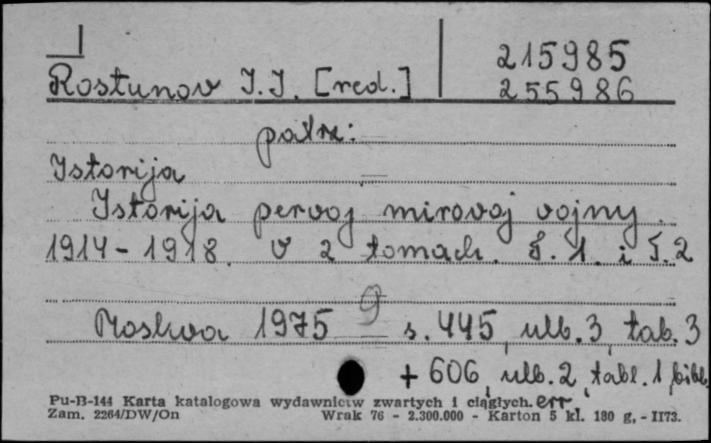 215985
Rostunov I.I. [red.] 255986
patrz:
Istorija
Istorija pervoj mirovoj vojny.
1914-1918. V 2 tomach. T. 1. i T. 2
9
Moskva 1975 s. 445, ulb. 3, tab. 3
+ 606, ulb. 2, tabl. 1, bibl.
err
Pu-B-144 Karta katalogowa wydawnictw zwartych i ciągłych.
Zam. 2264/DW/On Wrak 76 - 2.300.000 - Karton 5 kl. 180 g, - II73.